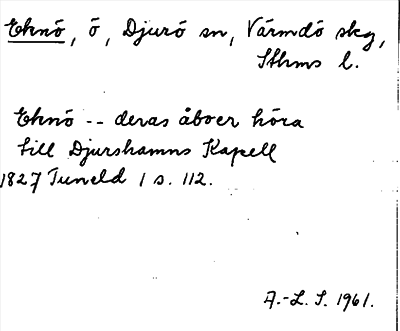 Eknö, ö, Djurö sn, Värmdö skg,
Sthms l.
Eknö -- deras åboer höra
till Djurshamns Kapell
1827 Tuneld 1 s. 112.
A.-L. S. 1961.